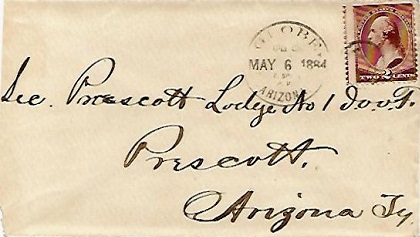 GLOBE
MAY 6 1884
ARIZON
2
TWO CENTS
Sec. Prescott Lodge No 1 I.o.o.F.
Prescott.
Arizona Ty.